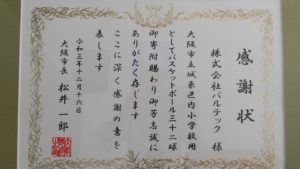 感謝状
株式会社バルテック 様
大阪市立城東区内小学校用
としてバスケットボール三十二球
御寄附賜わり御芳志誠に
ありがたく存じます
ここに深く感謝の意を
表します
令和三年十二月十六日
大阪市長 松井一郎